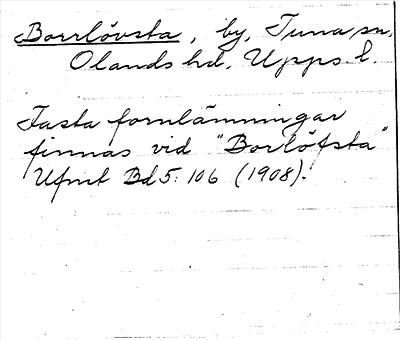 Borrlövsta, by, Tuna sn,
Olands hd, Upps. l.
Fasta fornlämningar
finnas vid "Borlöfsta"
Ufmt Bd 5: 106 (1908).